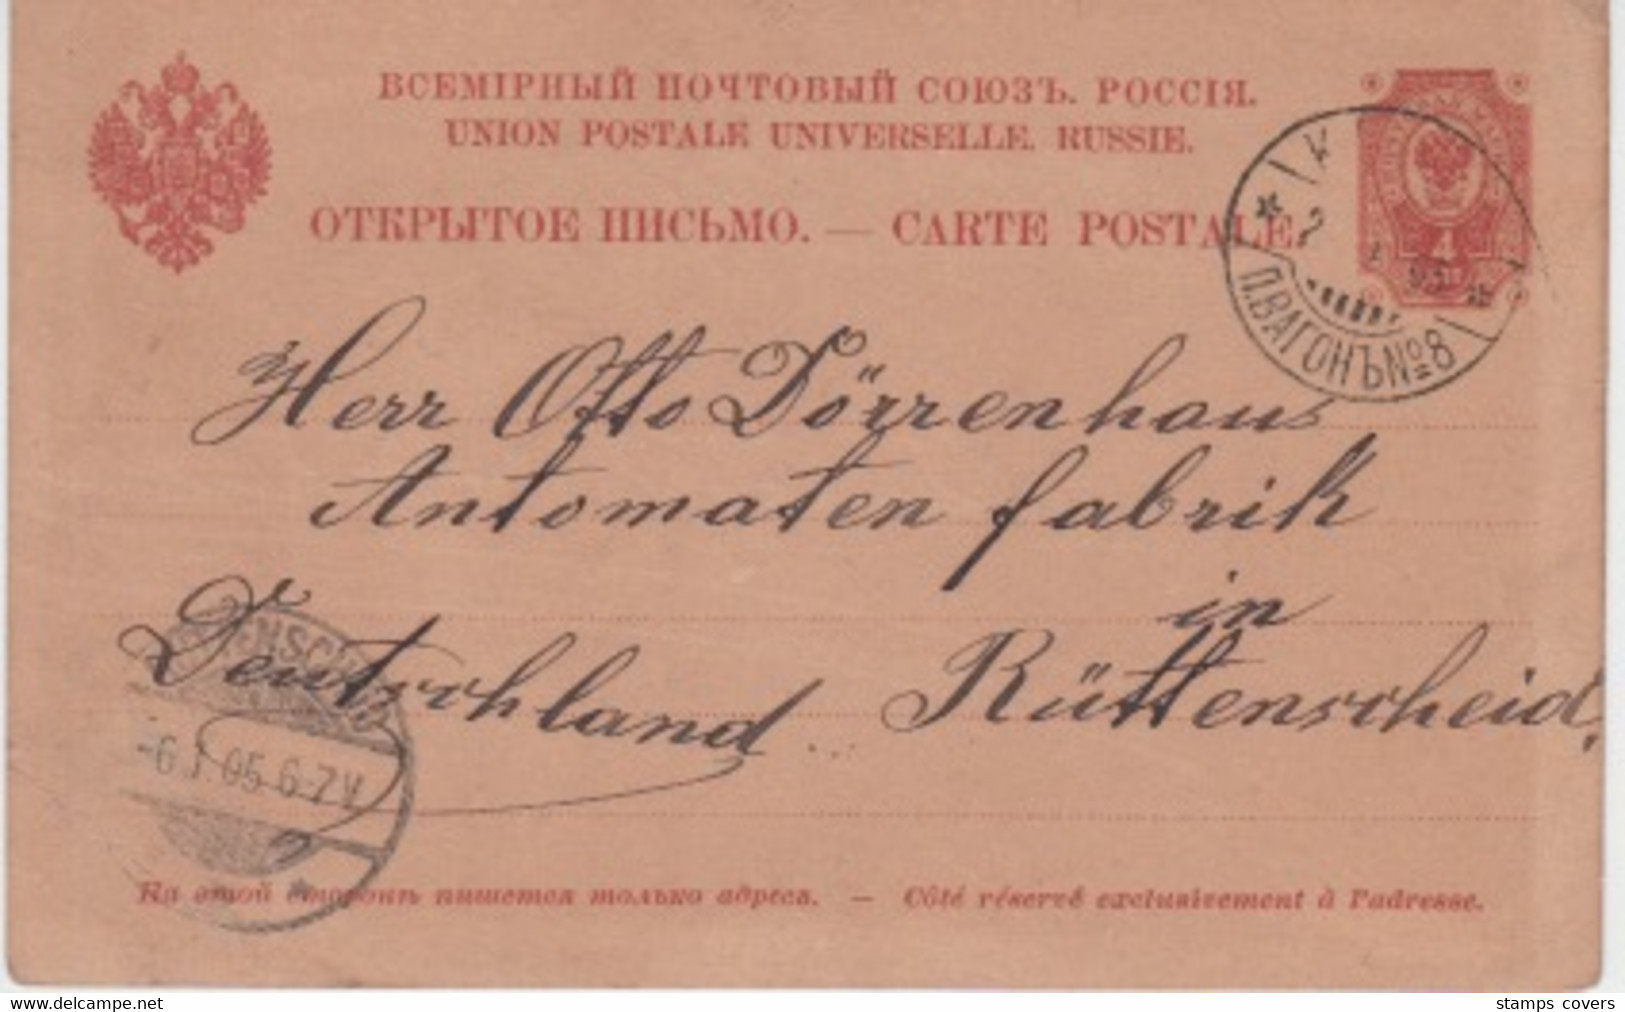 ВСЕМІРНЫЙ ПОЧТОВЫЙ СОЮЗЪ. РОССІЯ.
UNION POSTALE UNIVERSELLE. RUSSIE.
ОТКРЫТОЕ ПИСЬМО. — CARTE POSTALE.
4
П.ВАГОНЪ №8
Herr Otto Dörrenhaus
Automaten fabrik
in
Deutschland Rüttenscheid.
-6.1.05.6-7V
На этой сторонѣ пишется только адресъ. — Côté réservé exclusivement à l'adresse.
delcampe.net
stamps_covers